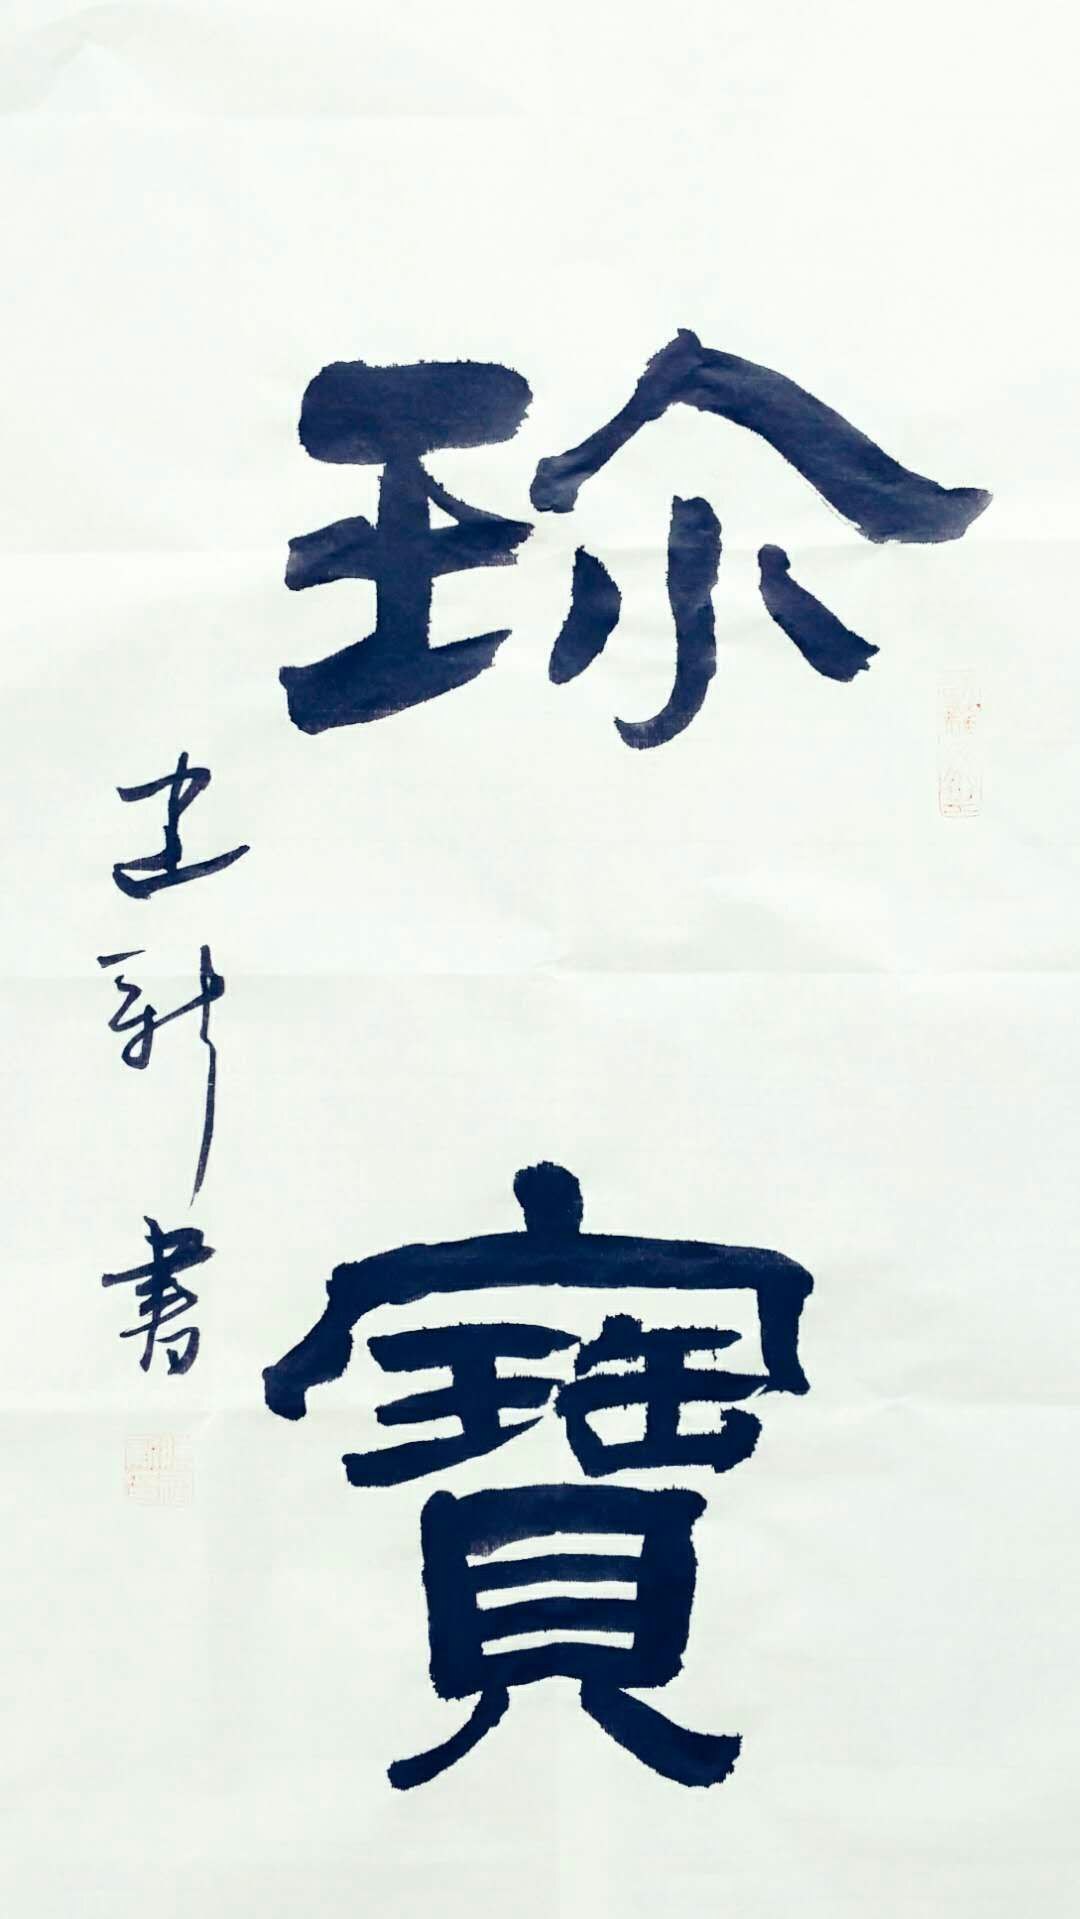 珎寶
建新書